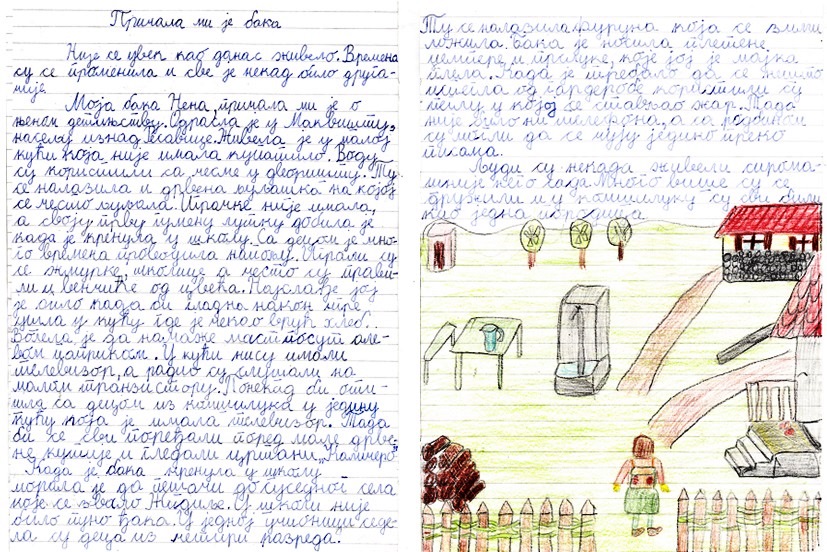 Причала ми је бака
Није се увек као данас живело. Времена
су се променила и све је некад било друга-
чије.
Моја бака Нена, причала ми је о
њеном детињству. Одрасла је у Маквишту,
насељу изнад Ресавице. Живела је у малој
кући која није имала купатило. Воду
су користили са чесме у дворишту. Ту
се налазила и дрвена љуљашка на којој
се често љуљала. Играчке није имала,
а своју прву гумену лутку добила је
када је кренула у школу. Са децом је мно-
го времена проводила напољу. Играли су
се жмурке, школице а често су прави-
ли и венчиће од цвећа. Најслађе јој
је било када би гладна након игре
ушла у кућу где је чекао врућ хлеб.
Волела је да намаже маст посут але-
вом паприком. У кући нису имали
телевизор, а радио су слушали на
малом транзистору. Понекад би оти-
шла са децом из комшилука у једину
кућу која је имала телевизор. Тада
би се сви поређали поред мале дрве-
не кутије и гледали цртани „Калимеро“
Када је бака кренула у школу
морала је да пешачи до суседног села
које се звало Жидиље. У школи није
било пуно ђака. У једној учионици седе-
ла су деца из четири разреда.
Ту се налазила фуруна која се зими
ложила. Бака је носила плетене,
џемпере, и прслуке, које јој је мајка
плела. Када је требало да се нешто
испегла од гардеробе користили су
пеглу у којој се стављао жар. Тада
није било ни телефона, а са родбином
су могли да се чују једино преко
писама.
Људи су некада живели сирома-
шније него сада. Много више су се
дружили и у комшилуку су сви били
као једна породица.